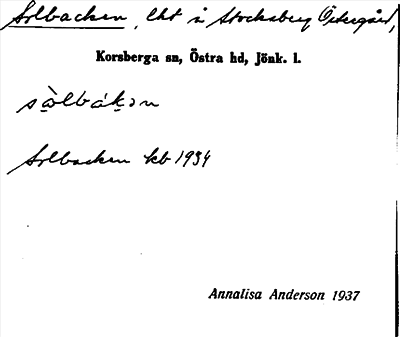 Solbacken, lht å Stocksberg Östergård,
Korsberga sn, Östra hd, Jönk. l.
sòlbákən
Solbacken kb 1934
Annalisa Anderson 1937